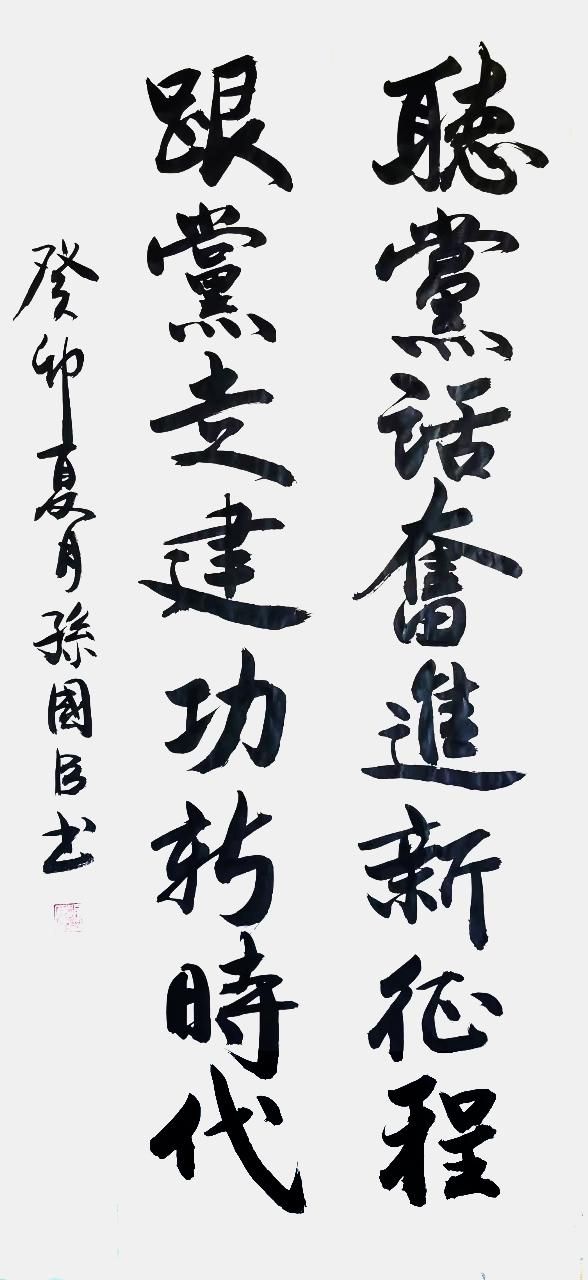 聽黨話奮進新征程
跟黨走建功新時代
癸卯夏月孫國臣书